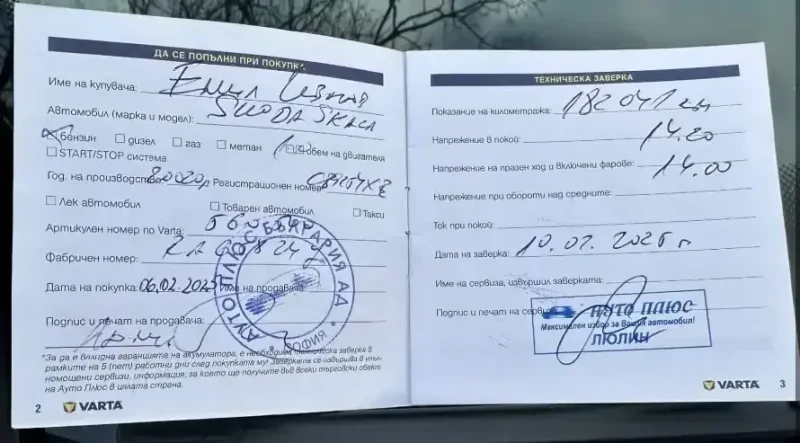 ДА СЕ ПОПЪЛНИ ПРИ ПОКУПК*
Име на купувача: Емил
Автомобил (марка и модел): SKODA SKALA
бензин дизел газ метан Обем на двигателя
START/STOP система
Год. на производство Регистрационен номер
Лек автомобил Товарен автомобил Такси
Артикулен номер по Varta:
Фабричен номер:
Дата на покупка: 06.02.2025 Име на продавача:
Подпис и печат на продавача:
АУТО ПЛЮС БЪЛГАРИЯ АД
СОФИЯ
*За да е валидна гаранцията на акумулатора, е необходима техническа заверка в
рамките на 5 (пет) работни дни след покупката му! Заверката се извършва в упъл-
номощени сервизи, информация, за което ще получите във всеки търговски обект
на Ауто Плюс в цялата страна.
2 VARTA
ТЕХНИЧЕСКА ЗАВЕРКА
Показание на километража: 182041 км
Напрежение в покой: 14.20
Напрежение на празен ход и включени фарове: 14.00
Напрежение при обороти над средните:
Ток при покой:
Дата на заверка: 10.02.2025 г
Име на сервиза, извършил заверката:
Подпис и печат на сервиза
АУТО ПЛЮС
Максимален избор за Вашия автомобил!
ЛЮЛИН
VARTA 3